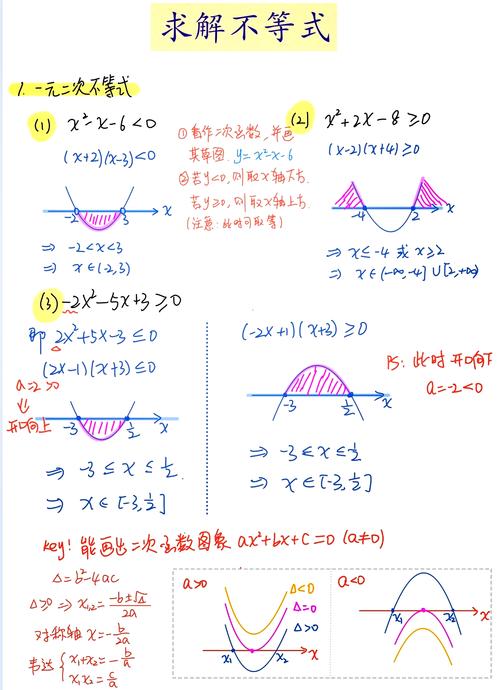 求解不等式
1. 一元二次不等式
(1) x²-x-6<0
(x+2)(x-3)<0
-2 3 x
⇒ -2<x<3
⇒ x∈(-2,3)
① 看作二次函数, 并画
其草图. y=x²-x-6
② 若y<0, 则取x轴下方.
若y≥0, 则取x轴上方.
(注意: 此时可取等)
(2) x²+2x-8≥0
(x-2)(x+4)≥0
-4 2 x
⇒ x≤-4 或 x≥2
⇒ x∈(-∞,-4]∪[2,+∞)
(3) -2x²-5x+3≥0
即 2x²+5x-3≤0
(2x-1)(x+3)≤0
a=2>0
⇓
开口向上
-3 1/2 x
⇒ -3≤x≤1/2.
⇒ x∈[-3,1/2]
(-2x+1)(x+3)≥0
PS: 此时开口向下
a=-2<0
-3 1/2 x
⇒ -3≤x≤1/2
⇒ x∈[-3,1/2]
key! 能画出二次函数图象 ax²+bx+c=0 (a≠0)
Δ=b²-4ac
Δ>0 ⇒ x₁,₂=(-b±√Δ)/2a
对称轴 x=-b/2a
韦达 { x₁+x₂=-b/a
x₁x₂=c/a
a>0
Δ<0
Δ=0
Δ>0
x₁ x₂ x
a<0
x₁ x₂ x